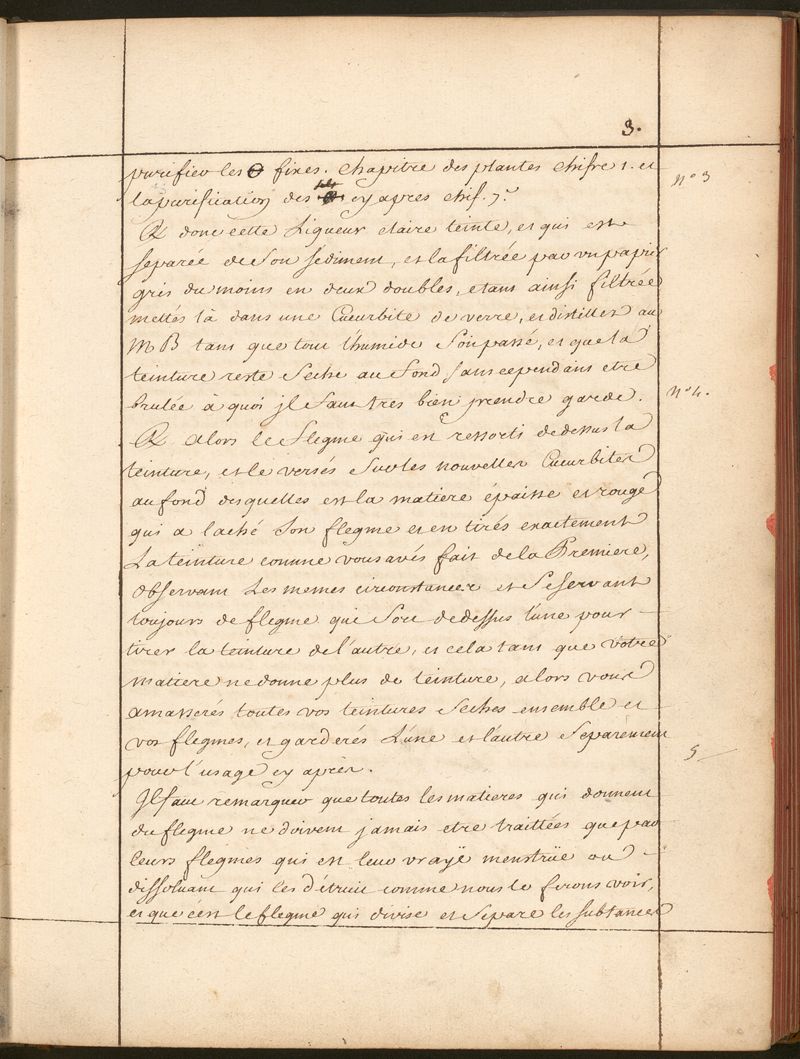 3.
purifier les 🜔 fixes. Chapitre des plantes chifre 1. et
N° 3
la purification des sels cy apres chif. 7.
R donc cette Liqueur claire teinte, et qui est
separée de son sédiment, et la filtrée par un papier
gris du moins en deux doubles, etant ainsi filtrée
mettés la dans une Cucurbite de verre, et distiller au
MB tant que tout l'humide soit passé, et que la
teinture reste seche au fond sans cependant etre
brulée à quoi jl faut tres bien prendre garde.
N° 4.
R alors le flegme qui est ressorti de dessus la
teinture, et le versés sur les nouvelles Cucurbites
au fond desquelles est la matiere épaisse et rouge
qui a laché son flegme et en tirés exactement
La teinture comme vous avés fait de la Premiere,
observant Les memes circonstances et se servant
toujours de flegme qui sort de dessus l'une pour
tirer la teinture de l'autre, et cela tant que votre
matiere ne donne plus de teinture, alors vous
amasserés toutes vos teintures seches ensemble et
vos flegmes, et garderés L'une et l'autre separèment
5
pour l'usage cy après.
Jl faut remarquer que toutes les matieres qui donnent
du flegme ne doivent jamais etre traittées que par
leurs flegmes qui est leur vraÿe menstrüe ou
dissoluant qui les détruit comme nous le ferons voir,
et que c'est le flegme qui divise et separe les substances